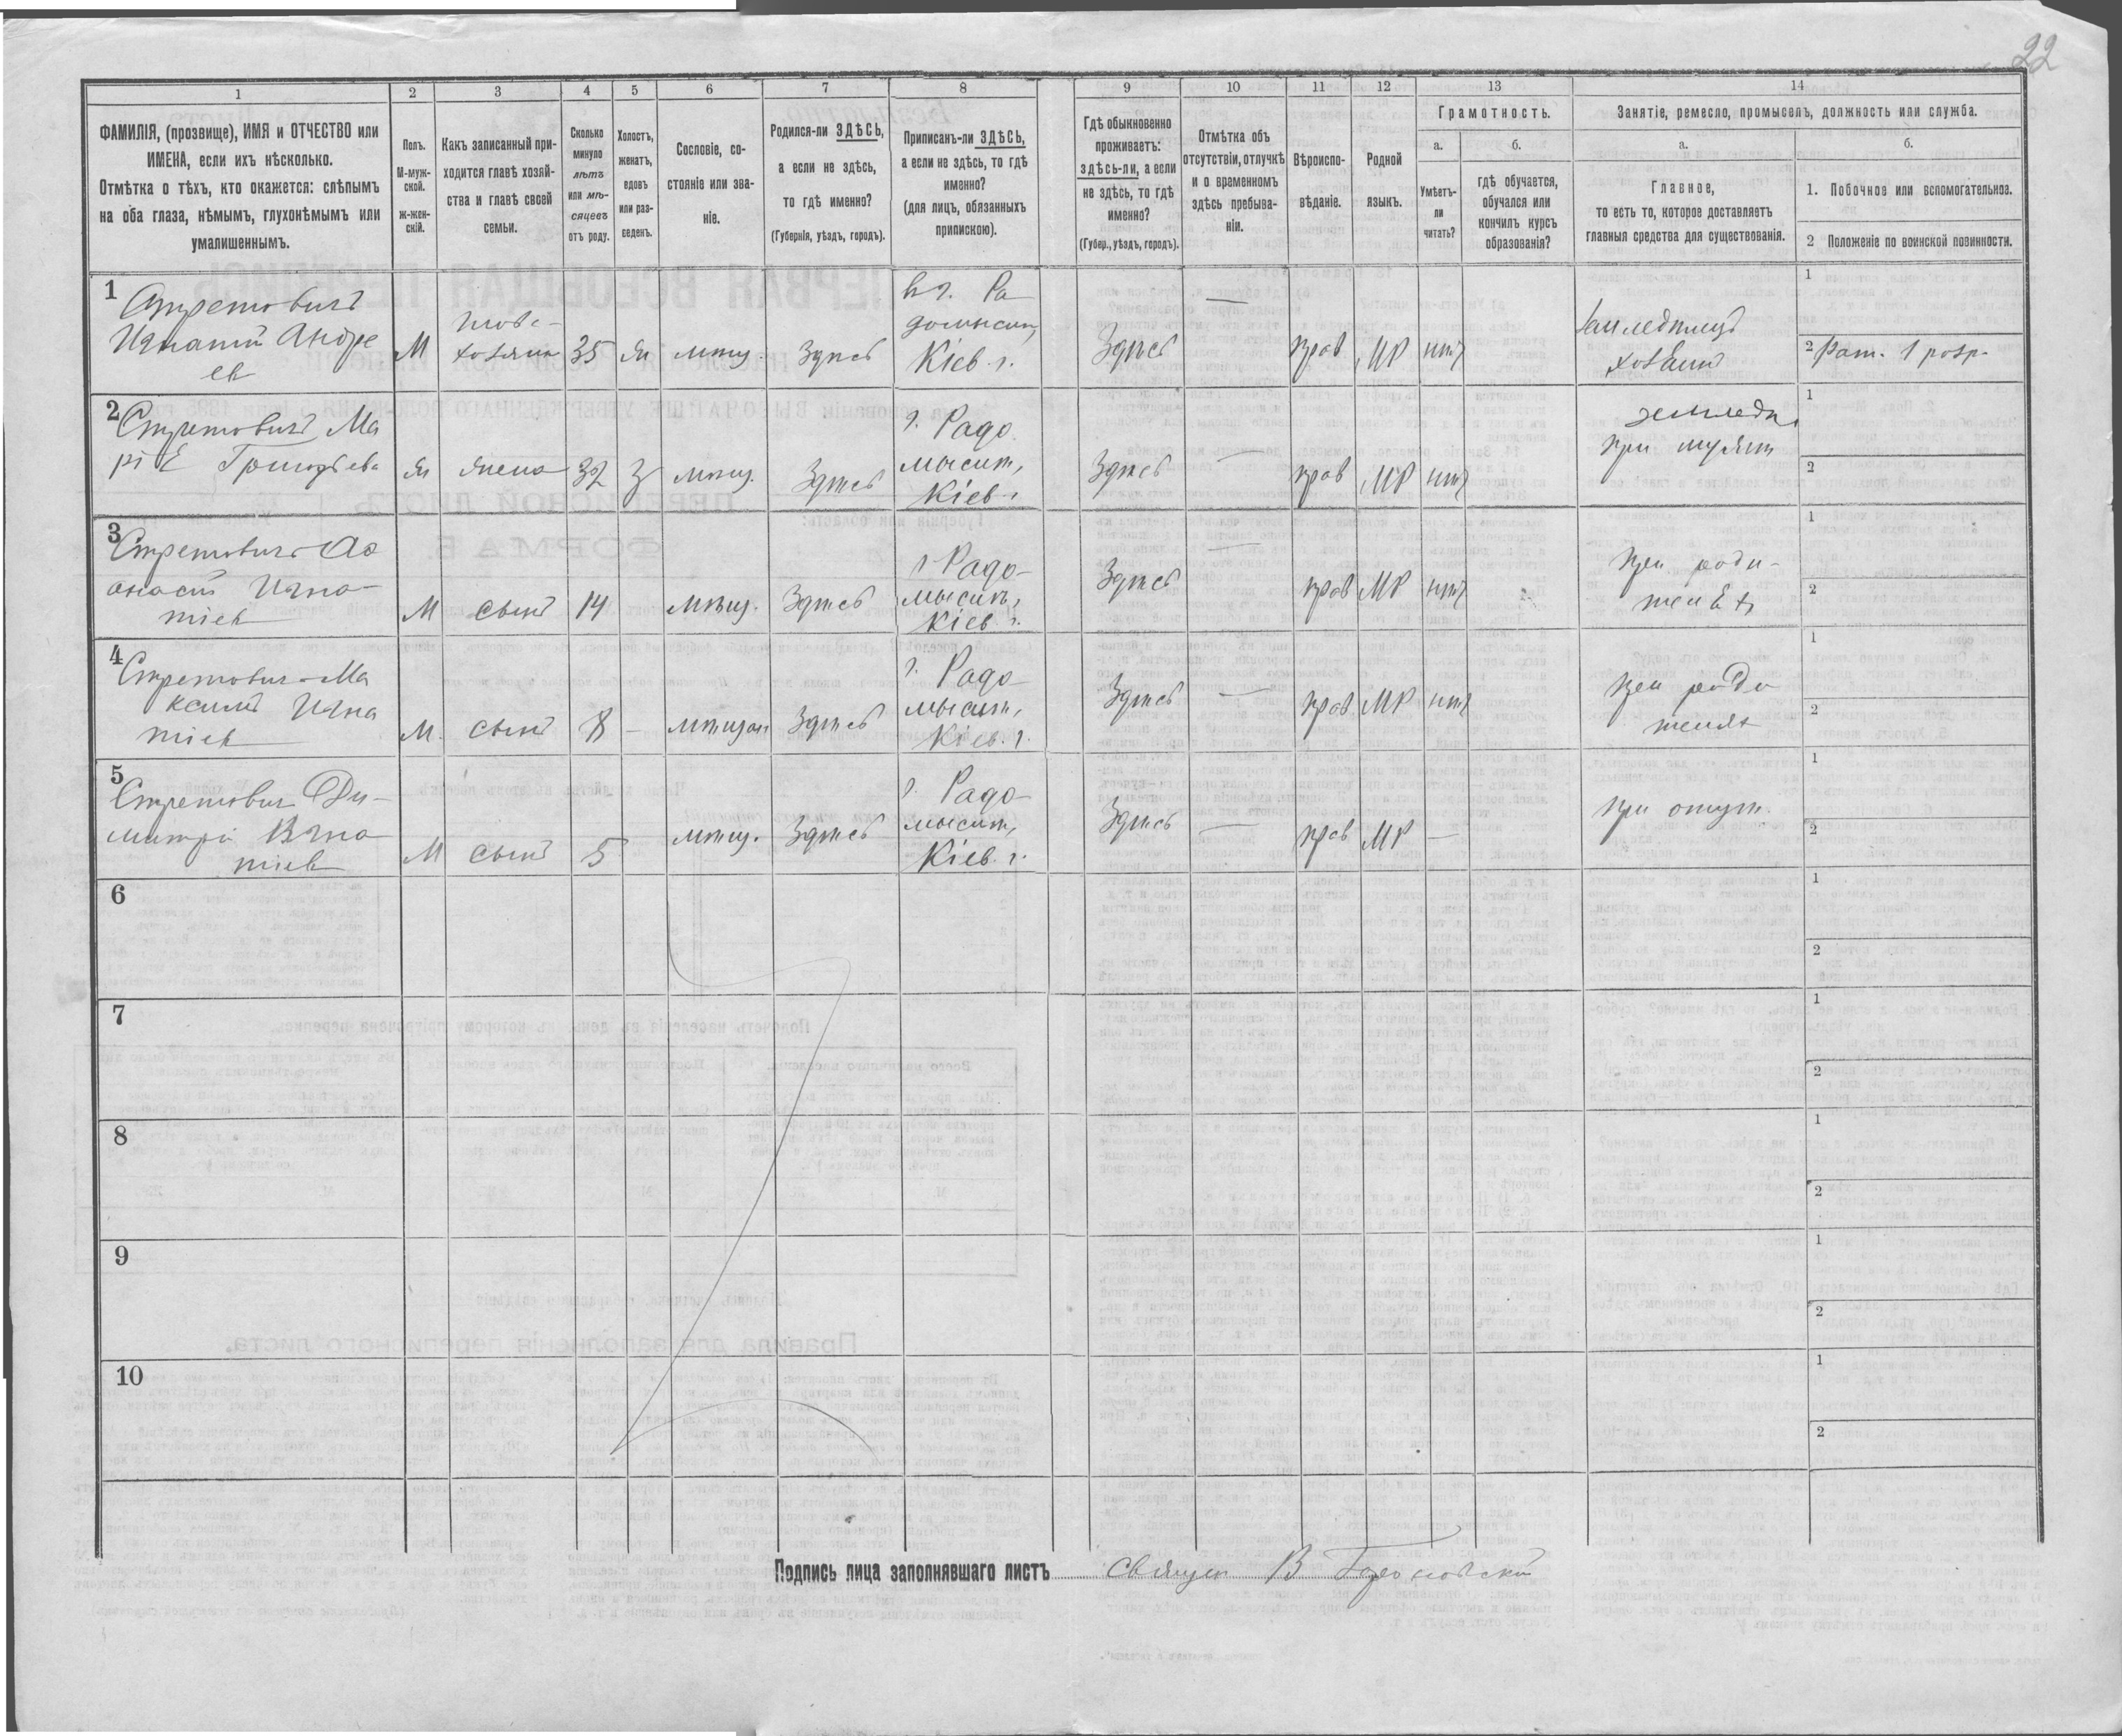 22
1
2
3
4
5
6
7
8
9
10
11
12
13
14
ФАМИЛІЯ, (прозвище), ИМЯ и ОТЧЕСТВО или
ИМЕНА, если ихъ нѣсколько.
Отмѣтка о тѣхъ, кто окажется: слѣпымъ
на оба глаза, нѣмымъ, глухонѣмымъ или
умалишеннымъ.
Полъ.
М-муж-
ской.
ж-жен-
скій.
Какъ записанный при-
ходится главѣ хозяй-
ства и главѣ своей
семьи.
Сколько
минуло
лѣтъ
или мѣ-
сяцевъ
отъ роду.
Холостъ,
женатъ,
вдовъ
или раз-
веденъ.
Сословіе, со-
стояніе или зва-
ніе.
Родился-ли ЗДѢСЬ,
а если не здѣсь,
то гдѣ именно?
(Губернія, уѣздъ, городъ).
Приписанъ-ли ЗДѢСЬ,
а если не здѣсь, то гдѣ
именно?
(для лицъ, обязанныхъ
припискою).
Гдѣ обыкновенно
проживаетъ:
здѣсь-ли, а если
не здѣсь, то гдѣ
именно?
(Губер., уѣздъ, городъ).
Отмѣтка объ
отсутствіи, отлучкѣ
и о временномъ
здѣсь пребыва-
ніи.
Вѣроиспо-
вѣданіе.
Родной
языкъ.
Грамотность.
а.
Умѣетъ-
ли
читать?
б.
гдѣ обучается,
обучался или
кончилъ курсъ
образованія?
Занятіе, ремесло, промыселъ, должность или служба.
а.
Главное,
то есть то, которое доставляетъ
главныя средства для существованія.
б.
1. Побочное или вспомогательное.
2 Положеніе по воинской повинности.
1
Стретовичъ
Игнатій Андре
ев
М
хозяинъ
35
жн
мѣщ.
Здѣсь
г. Ра
домысль,
Кіев. г.
Здѣсь
—
прав
МР
нѣт
хозяинъ
1
2 Рат. 1 разр.
2
Стретовичъ Ма
рія
ж
жена
32
З
мѣщ.
Здѣсь
г. Радо
мысль,
Кіев. г.
Здѣсь
—
прав
МР
нѣт
земледѣл
при мужѣ
1
2
3
Стретовичъ Аѳ
анасій Игна
тіев
М
сынъ
14
мѣщ.
Здѣсь
г. Радо-
мысль,
Кіев. г.
Здѣсь
—
прав
МР
нѣт
при роди-
телях
1
2
4
Стретович Ма
ксимъ Игна
тіев
М.
сынъ
8
—
мѣщан
Здѣсь
г. Радо-
мысль,
Кіев. г.
Здѣсь
—
прав
МР
нѣт
при роди
телях
1
2
5
Стретович Ди-
митрій Игна
тіев
М
сынъ
5
мѣщ.
Здѣсь
г. Радо-
мысль,
Кіев. г.
Здѣсь
—
прав
МР
—
при отцѣ.
1
2
6
1
2
7
1
2
8
1
2
9
1
2
10
1
2
Подпись лица заполнявшаго листъ священ В